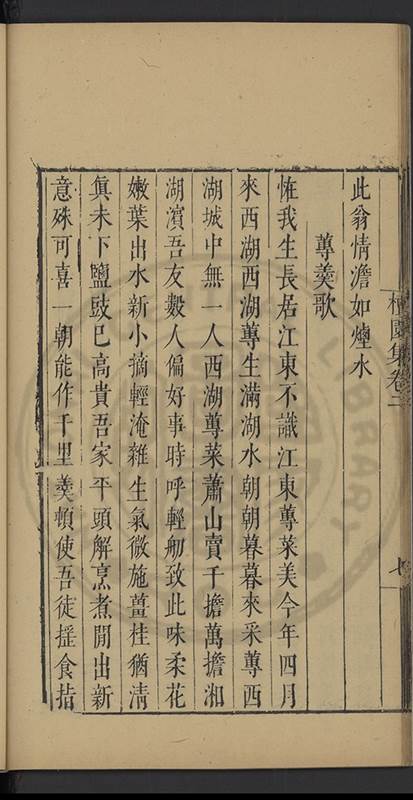 此翁情澹如煙水
蓴羹歌
怪我生長居江東不識江東蓴菜美今年四月
來西湖西湖蓴生滿湖水朝朝暮暮來采蓴西
湖城中無一人西湖蓴菜蕭山賣千擔萬擔湘
湖濱吾友數人偏好事時呼輕舠致此味柔花
嫩葉出水新小摘輕淹雜生氣微施薑桂猶清
眞未下鹽豉已高貴吾家平頭解烹煮閒出新
意殊可喜一朝能作千里羹頓使吾徒搖食指
園集卷
七